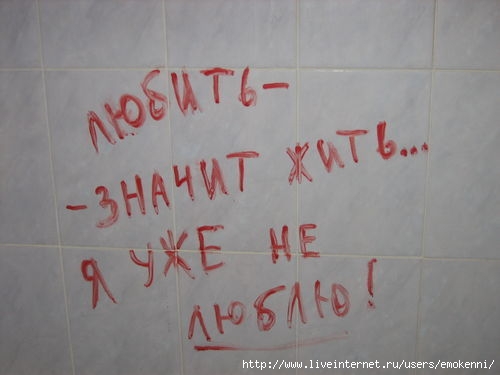 ЛЮБИТЬ-
-ЗНАЧИТ ЖИТЬ...
Я УЖЕ НЕ
ЛЮБЛЮ!
http://www.liveinternet.ru/users/emokenni/